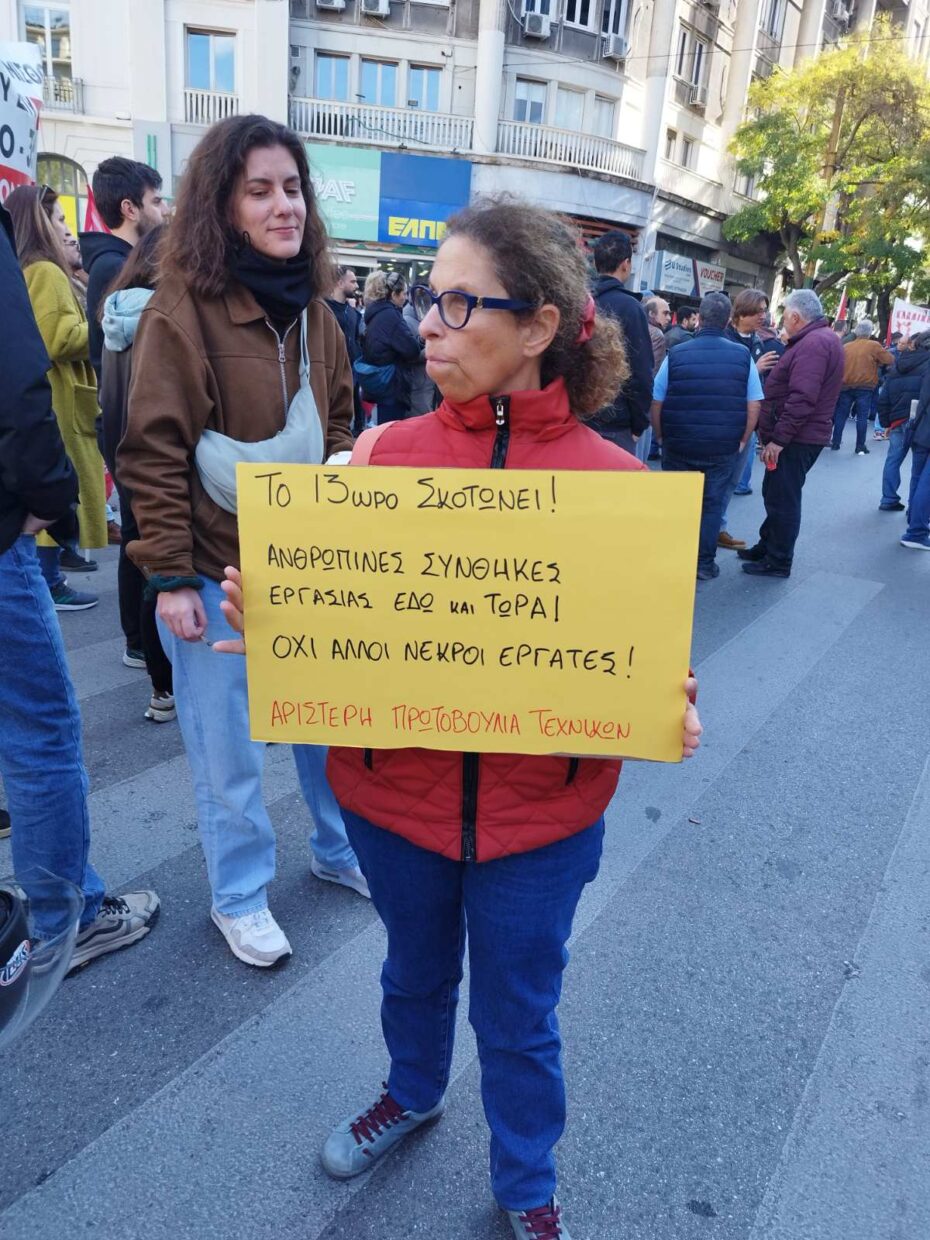 ΤΟ 13ωρο ΣΚΟΤΩΝΕΙ!
ΑΝΘΡΩΠΙΝΕΣ ΣΥΝΘΗΚΕΣ
ΕΡΓΑΣΙΑΣ ΕΔΩ και ΤΩΡΑ!
ΟΧΙ ΑΛΛΟΙ ΝΕΚΡΟΙ ΕΡΓΑΤΕΣ!
ΑΡΙΣΤΕΡΗ ΠΡΩΤΟΒΟΥΛΙΑ ΤΕΧΝΙΚΩΝ
VOUCHER